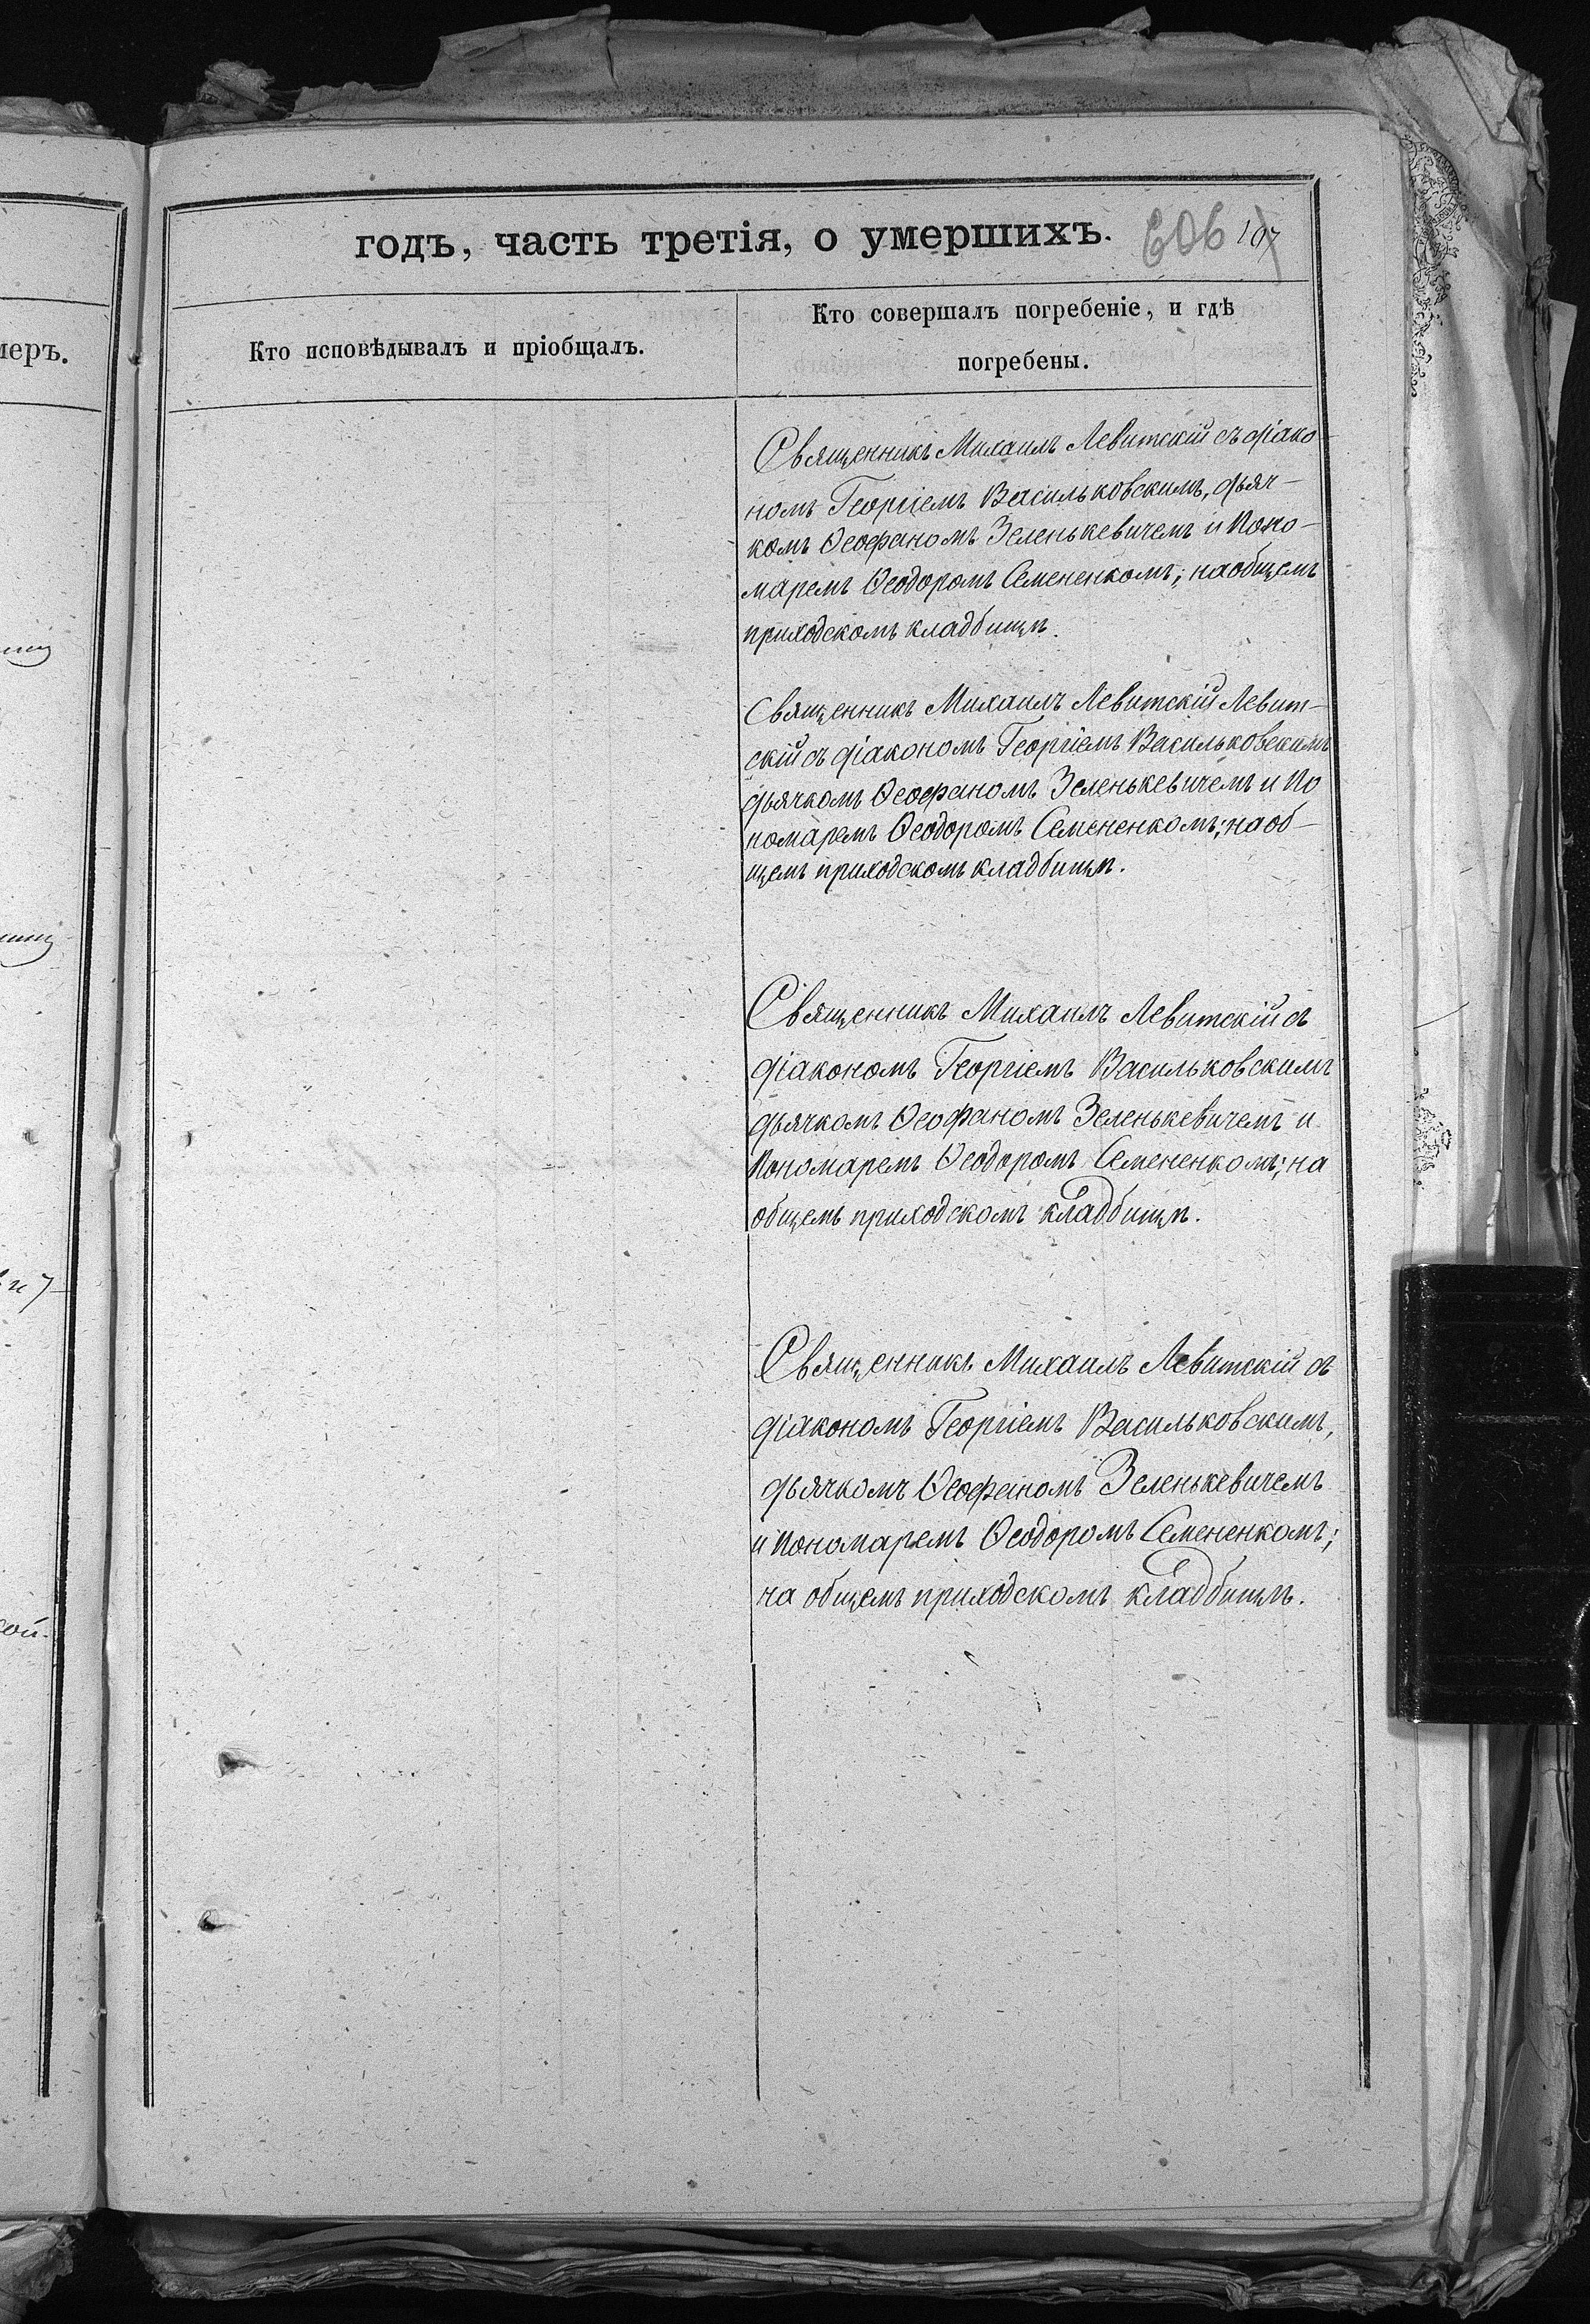 годъ, часть третія, о умершихъ. 606 107
меръ.
Кто исповѣдывалъ и пріобщалъ.
Кто совершалъ погребеніе, и гдѣ
погребены.
Священникъ Михаилъ Левитскій съ діако-
номъ Георгіемъ Васильковскимъ, дьяч-
комъ Ѳеофаномъ Зеленькевичемъ и Поно-
маремъ Ѳеодоромъ Семененкомъ; на общемъ
приходскомъ кладбищѣ.
Священникъ Михаилъ Левитскій Левит-
скій съ діакономъ Георгіемъ Васильковскимъ
дьячкомъ Ѳеофаномъ Зеленькевичемъ и По
номаремъ Ѳеодоромъ Семененкомъ; на об-
щемъ приходскомъ кладбищѣ.
Священникъ Михаилъ Левитскій съ
діакономъ Георгіемъ Васильковскимъ
дьячкомъ Ѳеофаномъ Зеленькевичемъ и
Пономаремъ Ѳеодоромъ Семененкомъ; на
общемъ приходскомъ кладбищѣ.
Священникъ Михаилъ Левитскій съ
діакономъ Георгіемъ Васильковскимъ,
дьячкомъ Ѳеофаномъ Зеленькевичемъ
и Пономаремъ Ѳеодоромъ Семененкомъ;
на общемъ приходскомъ кладбищѣ.